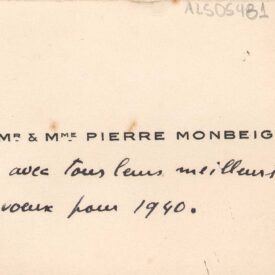 ALS05481
MR & MME PIERRE MONBEIG
avec tous leurs meilleurs
voeux pour 1940.